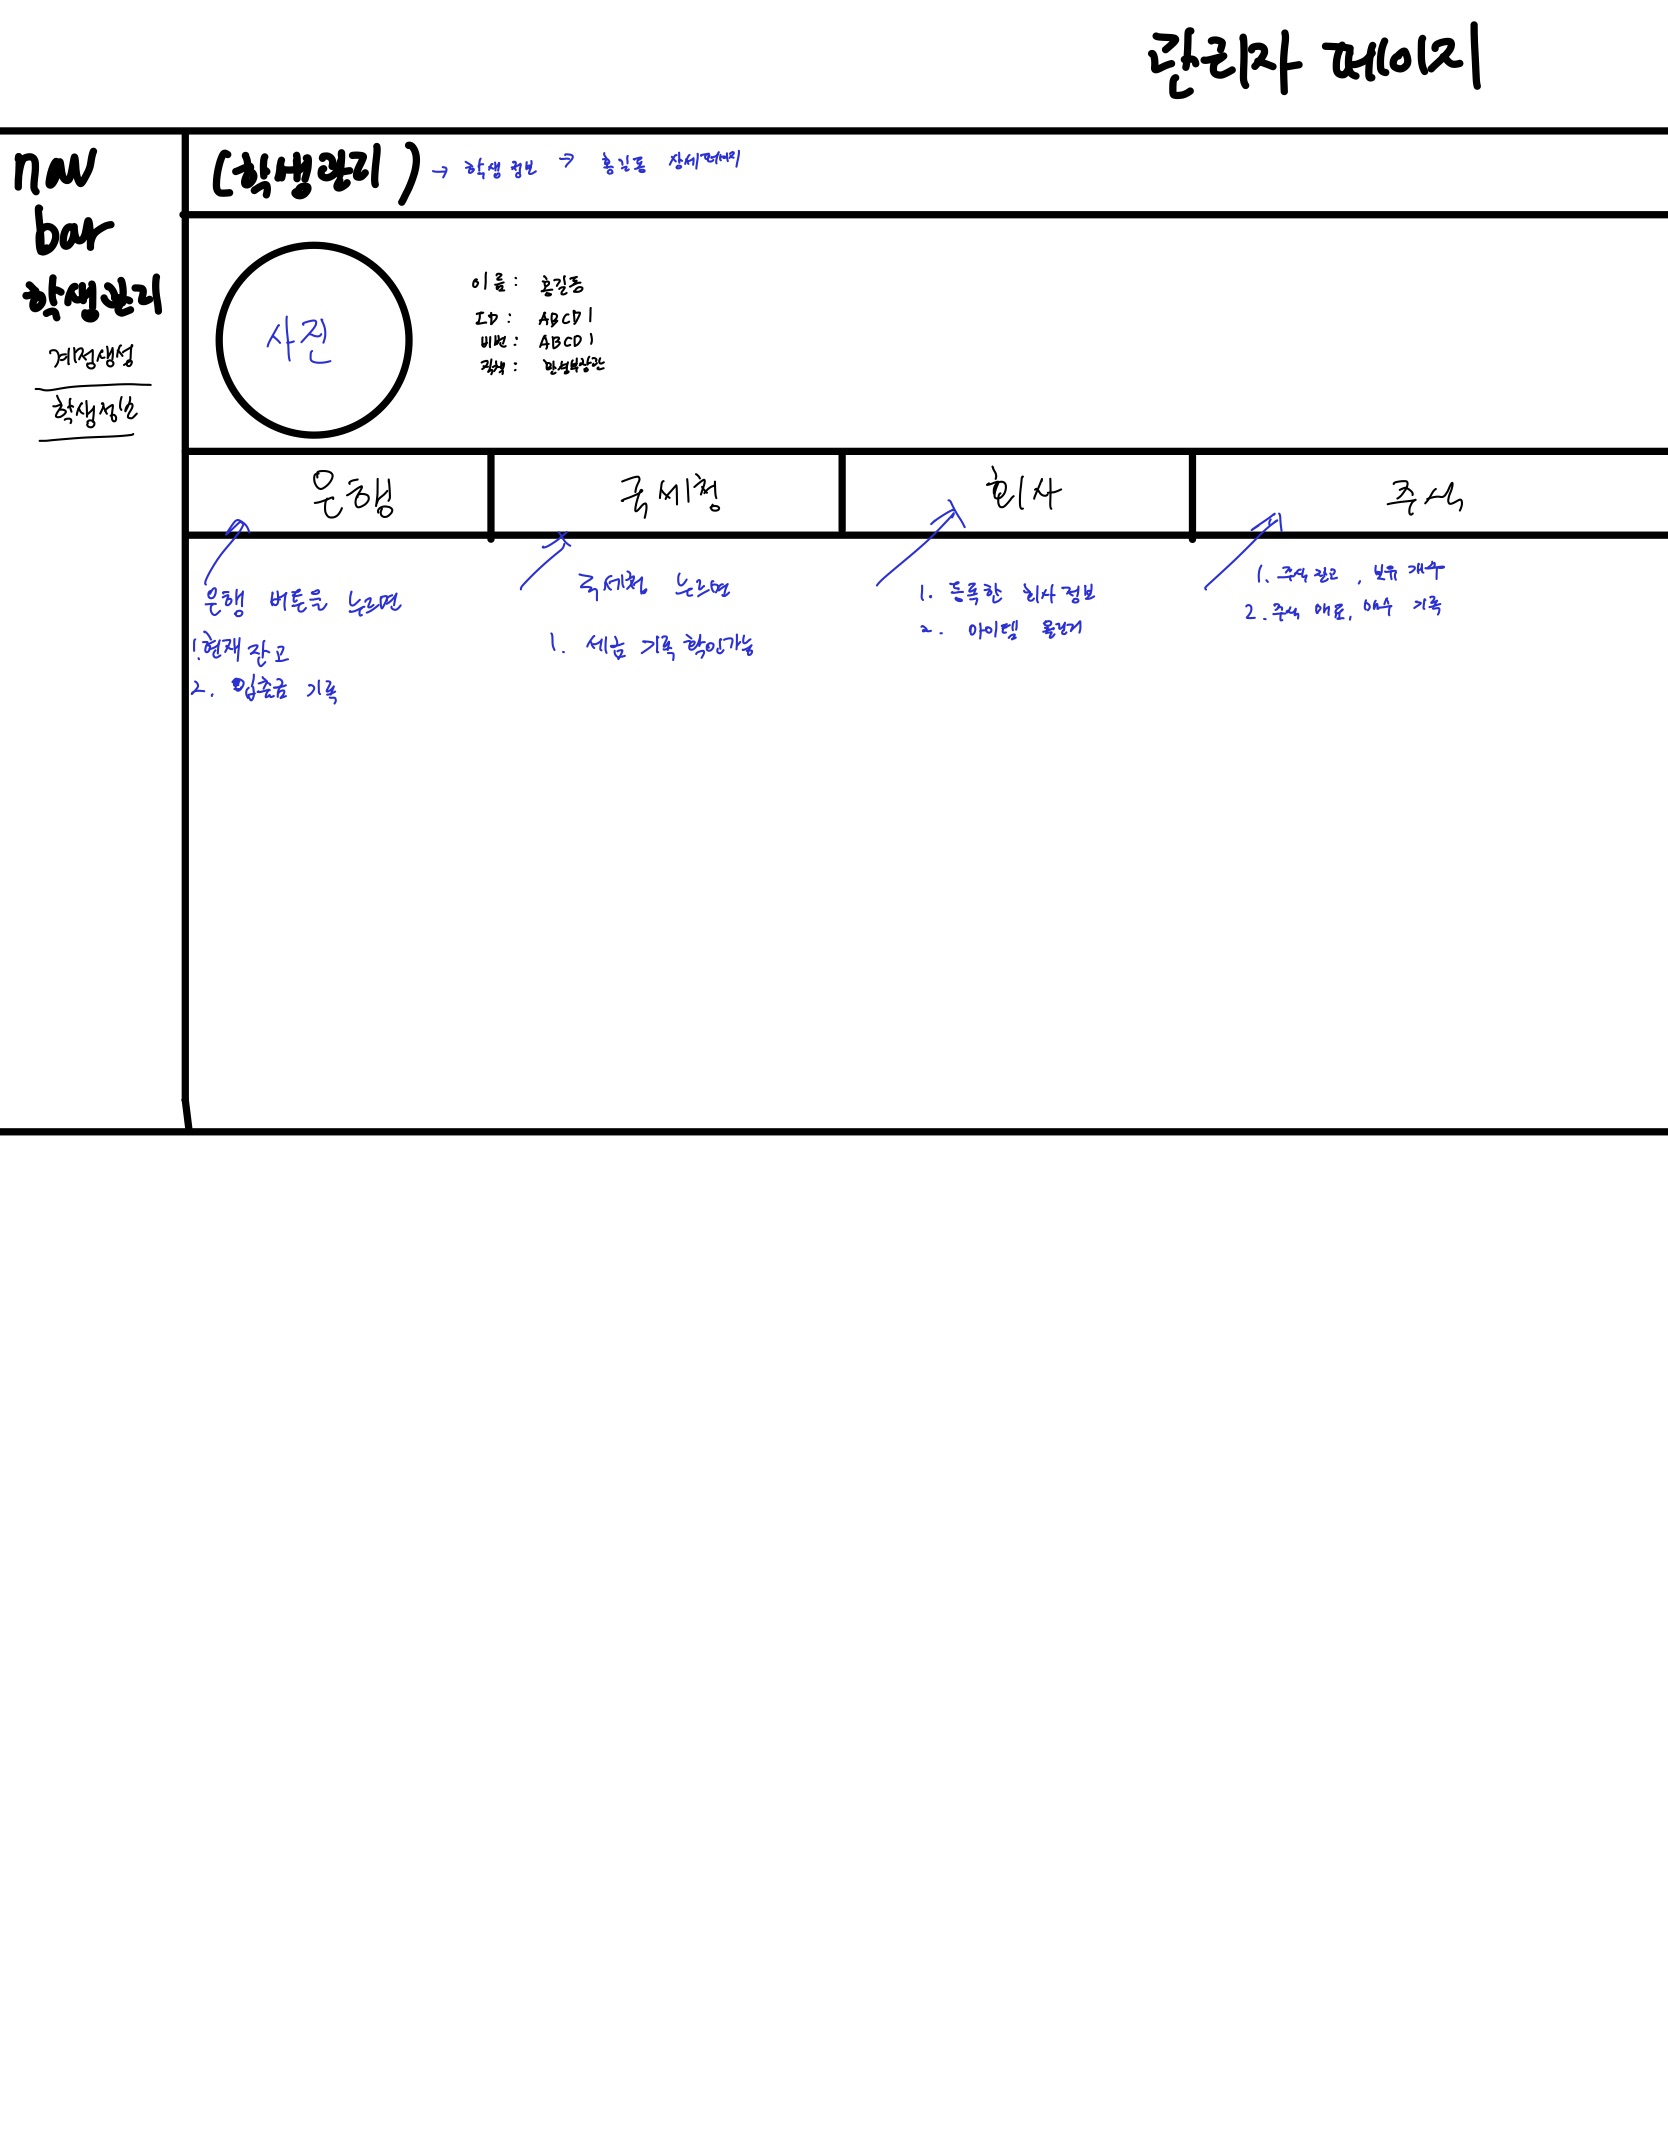 관리자 페이지
nav
bar
학생관리
계정생성
학생정보
(학생관리) → 학생 정보 → 홍길동 상세페이지
사진
이름 : 홍길동
ID : ABCD1
비번 : ABCD1
직책 :
은행
국세청
회사
주식
은행 버튼을 누르면
1. 현재 잔고
2. 입출금 기록
국세청 누르면
1. 세금 기록 확인가능
1. 등록한 회사 정보
2. 아이템
1. 주식 잔고, 보유 개수
2. 주식 매도, 매수 기록